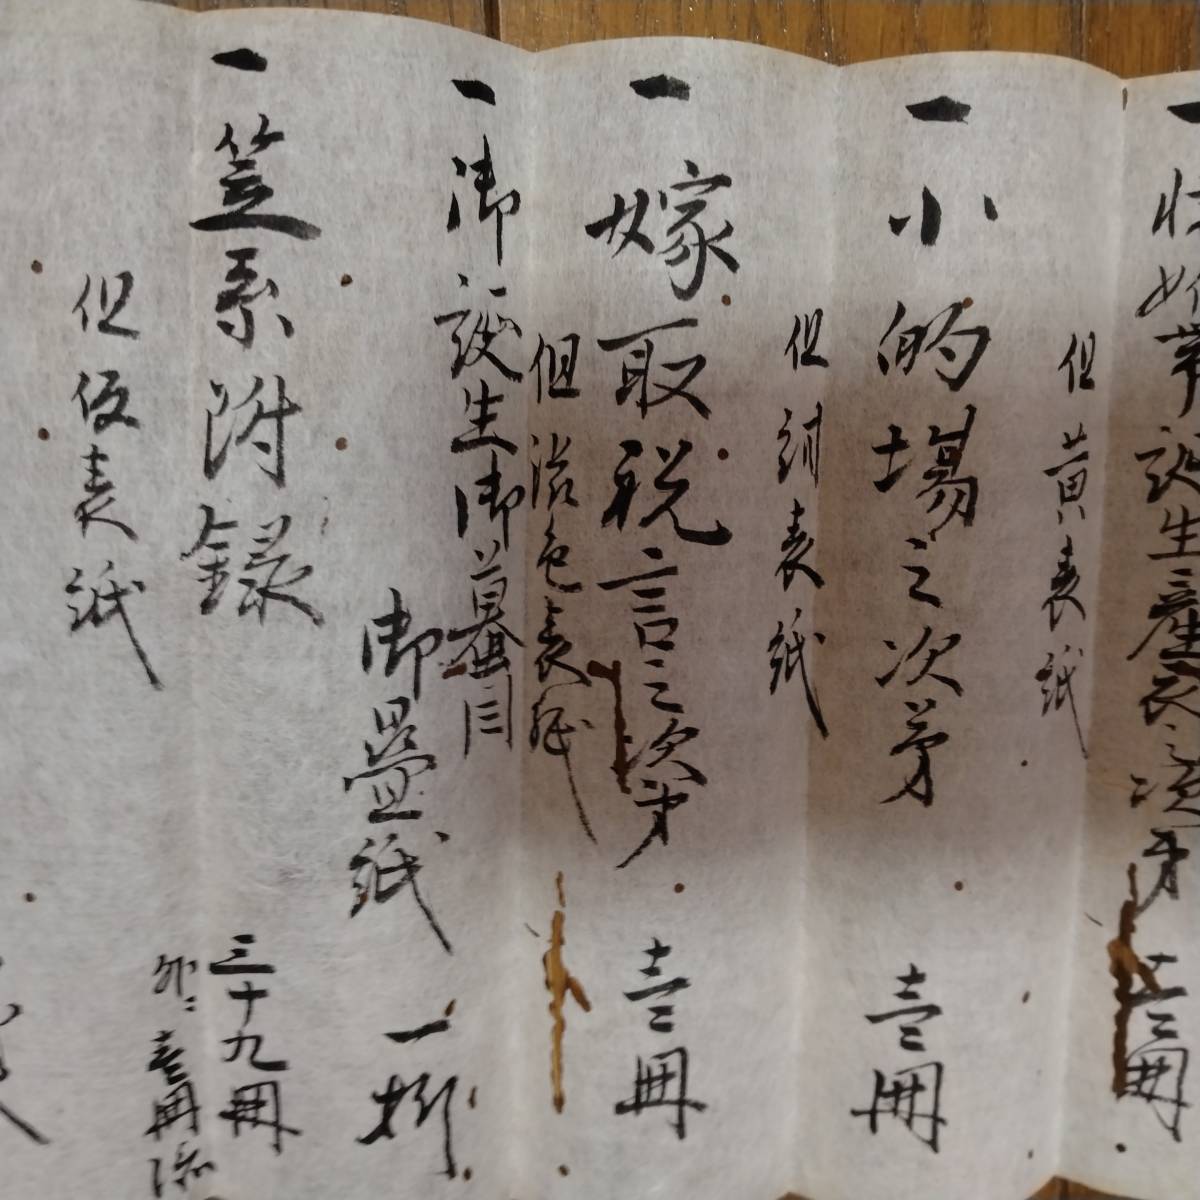 一 妊婦事誕生産衣之次第 壱冊
但黄表紙
一 小的場之次第 壱冊
但紺表紙
一 嫁取祝言之次第 壱冊
但渋色表紙
一 御誕生御蟇目
御畳紙 一折
一 笠系附録 三十九冊
外ニ壱冊添
但仮表紙